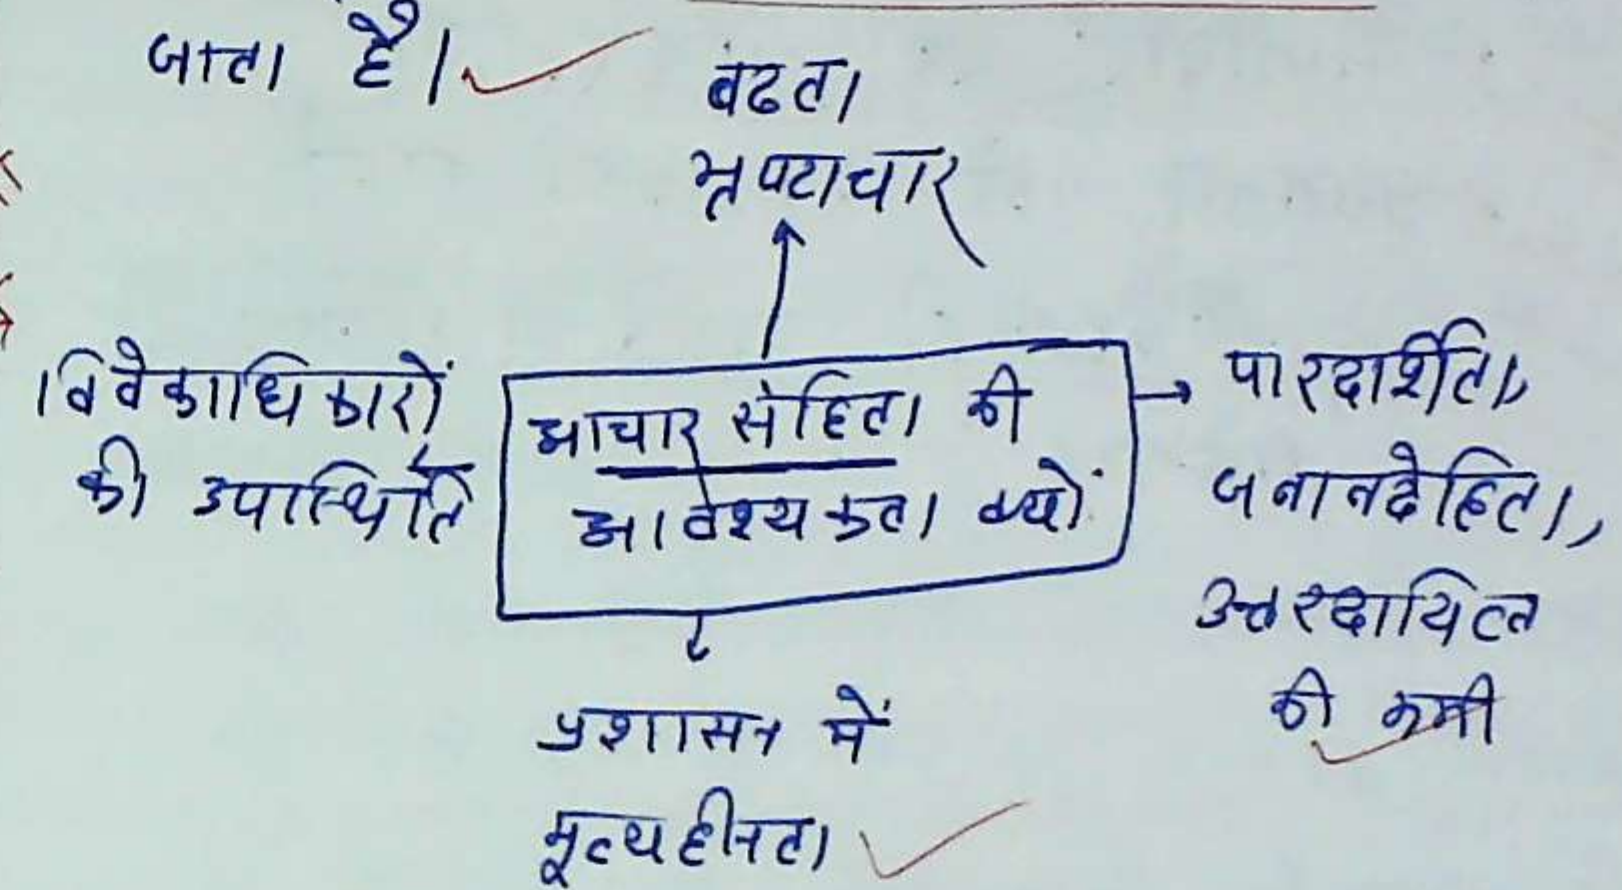 जाता है।
बढता
भ्रष्टाचार
विवेकाधिकारों
की उपास्थिति
आचार संहिता की
आवश्यकता क्यों
पारदर्शिता,
जनानदेहिता,
उत्तरदायित्व
की कमी
प्रशासन में
मूल्यहीनता